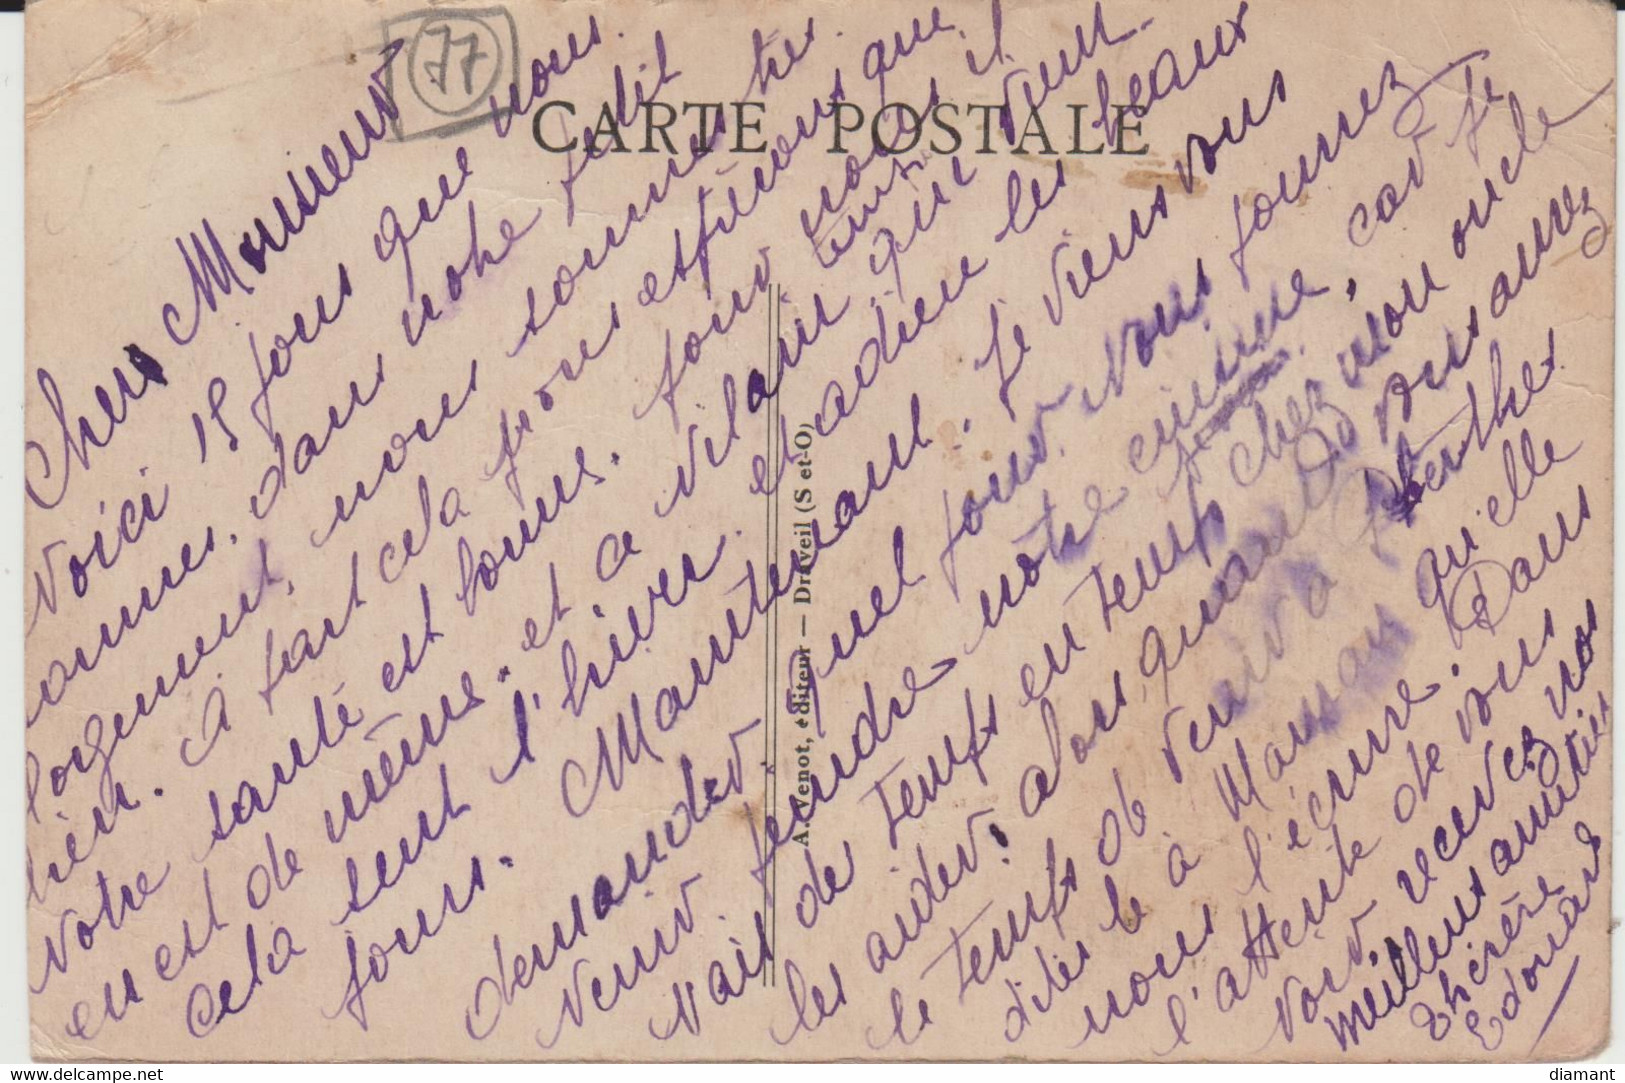 77
CARTE POSTALE
A. Venot, éditeur — Draveil (S et-O)
Chers Monsieur
Voici 15 jours que nous
sommes dans notre petit
logement, nous sommes très
bien. A part cela nous espérons que
votre santé est bonne, pour nous il
en est de même. et ce vilain temps qui veut
cela sent l'hiver et adieu les beaux
jours. Maintenant je viens vous
demander quel jour vous pourrez
venir prendre notre cuisine, car je
vais de temps en temps chez mon oncle
les aider. alors quand vous aurez
le temps de venir à Perthes
dites le à Maman qu'elle
nous l'écrive. Dans
l'attente de vous
voir recevez nos
meilleurs amitiés
Thérèse
Edouard
www.delcampe.net
diamant